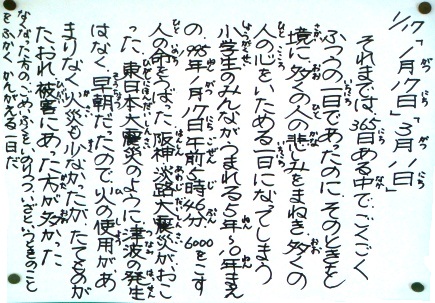 1/17 「1月17日」「3月11日」
それまでは、365日ある中で、ごくごく
ふつうの一日であったのに、そのときを
境に多くの人の悲しみをまねき、多くの
人の心をいためる一日になってしまう
小学生のみんながうまれる5年〜10年まえ
の、1995年1月17日午前5時46分、6000をこす
人の命をうばった阪神淡路大震災がおこ
った。東日本大震災のように、津波の発生
はなく、早朝だったので火の使用があ
まりなく火災も少なかったが、たてものが
たおれ、被害にあった方が多かった
なくなった方のごめいふくをいのりつつ、のこと
をふかくかんがえる一日だ